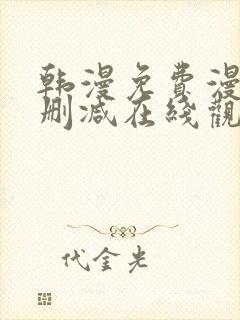 韩漫免费漫
删减在线觀
代金光